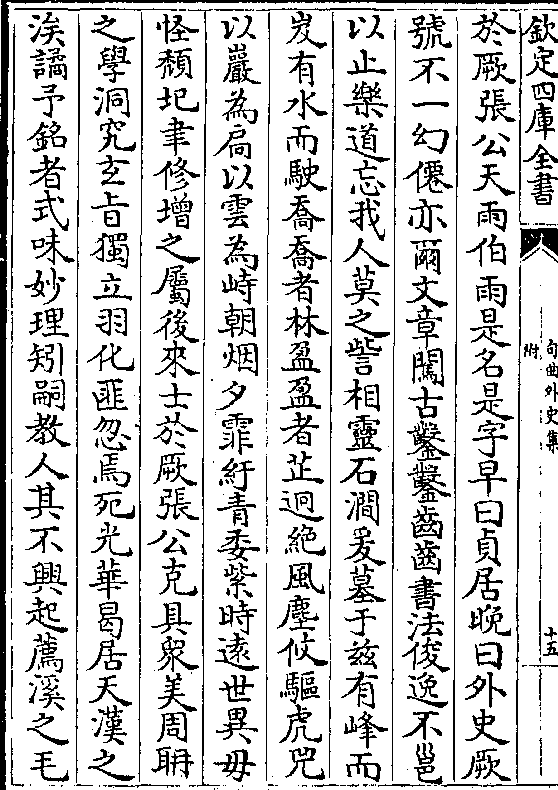 欽定四庫全書
句曲外史集
附
十五
於厥張公天雨伯雨是名是字早曰貞居晚曰外史厥
號不一幻僊亦爾文章闖古鑿鑿齒齒書法俊逸不邕
以止樂道忘我人莫之訾相靈石澗爰墓于兹有峰而
岌有水而駛喬喬者林盈盈者芷迥絶風塵仗驅虎兕
以巖為扃以雲為峙朝烟夕霏紆青委紫時逺世異毋
怪頽圯聿修增之屬後來士於厥張公克具衆美周聃
之學洞究玄旨獨立羽化匪忽焉死光華曷居天漢之
涘譎予銘者式味妙理矧嗣教人其不興起薦溪之毛